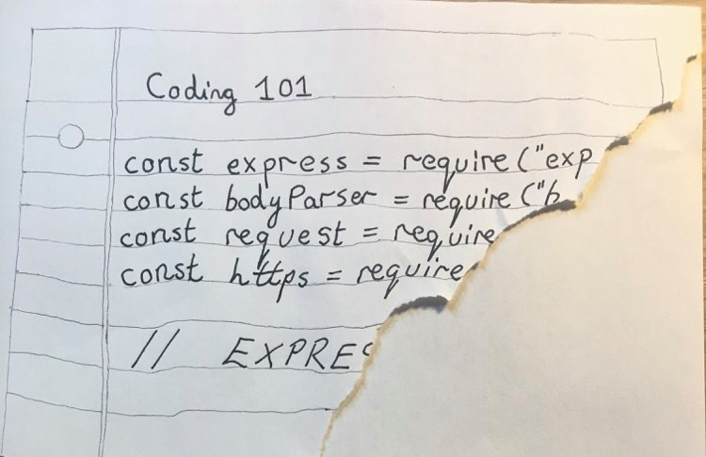 Coding 101
const express = require("exp
const bodyParser = require("b
const request = require
const https = require
// EXPRES